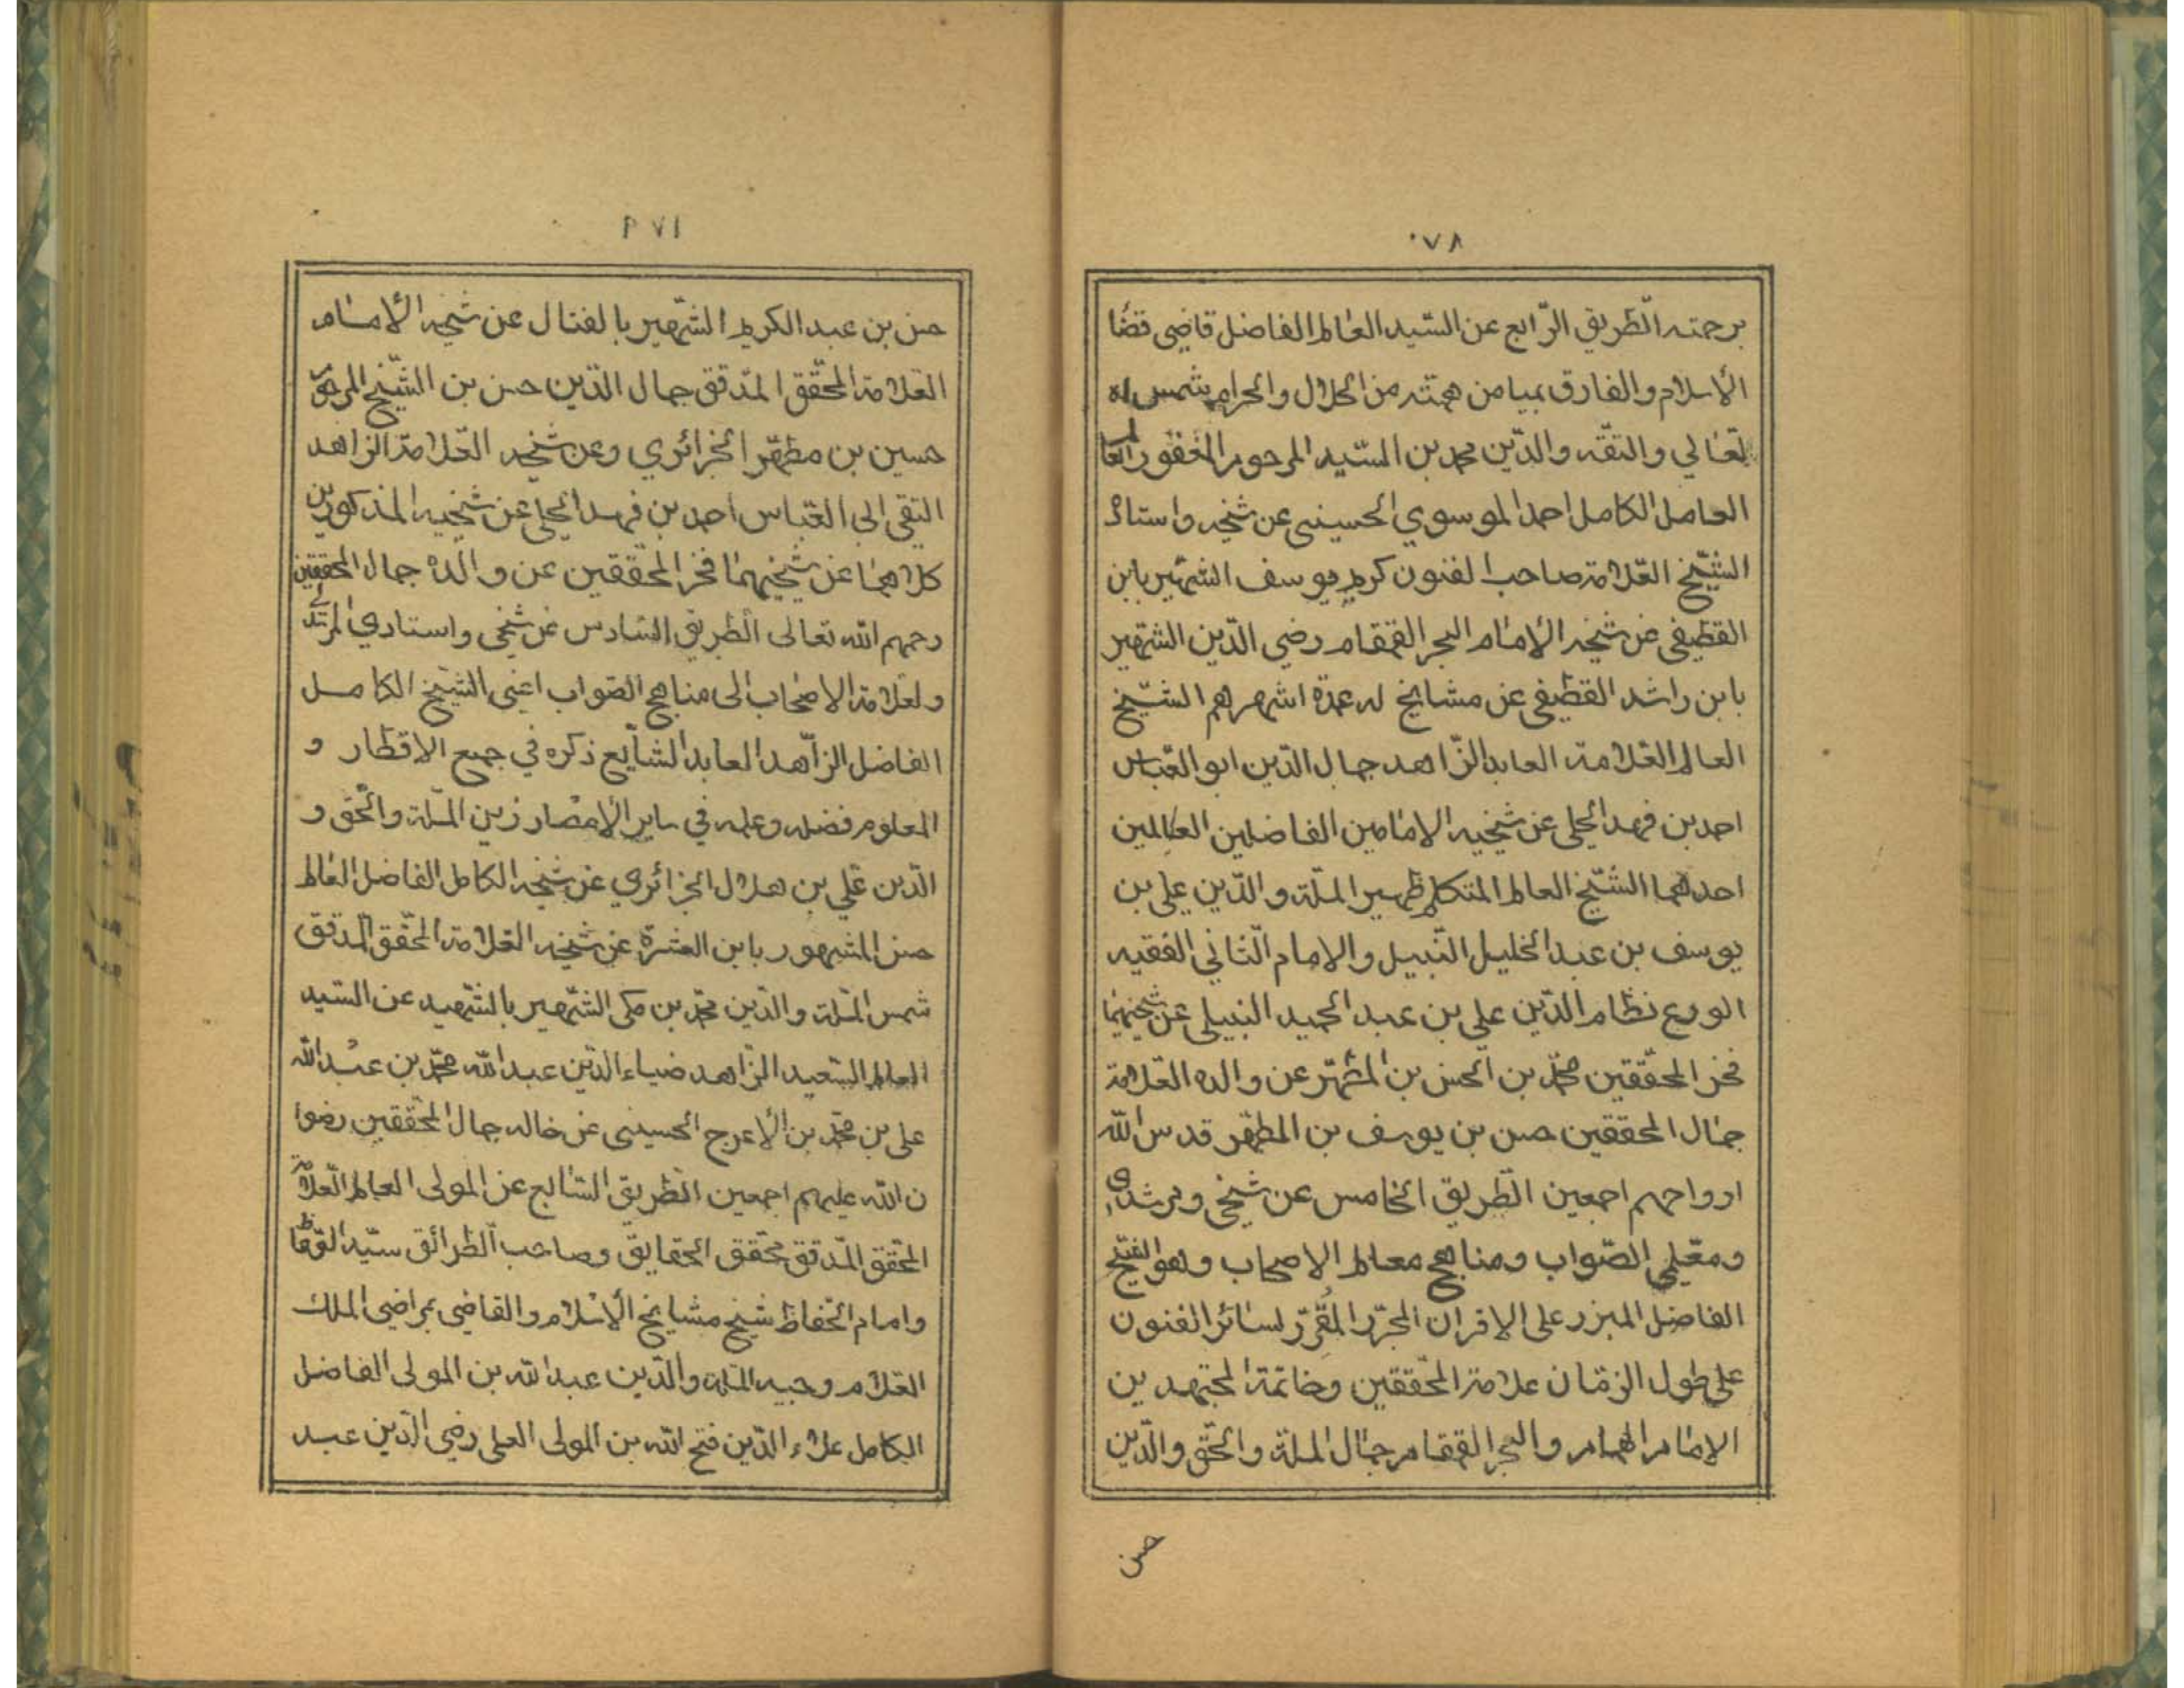 ٠٧٨
برحمته الطّريق الرّابع عن السّيد العالم الفاضل قاضي قضا
الأسلام والفارق بميامن همّته من الحلال والحرام شمس
تعالي والتقّه والدّين محمد بن السّيد المرحوم المغفور
العامل الكامل احمد الموسوي الحسيني عن شيخه واستاذ
الشّيخ العّلامة صاحب الفنون كريم يوسف الشّهير بابن
القطيفي عن شيخه الإمام البحر القمقام رضي الدّين الشّهير
بابن راشد القطيفي عن مشايخ له عدّة اشهرهم الشّيخ
العالم العّلامة العابد الزّاهد جمال الدّين ابو العّباس
احمد بن فهد الحلي عن شيخيه الامامين الفاضلين العالمين
احدهما الشّيخ العالم المتكلم ظهير الملّة والدّين علي بن
يوسف بن عبد الخليل النّبيل والإمام الثّاني الفقيه
الورع نظام الدّين علي بن عبد الحميد النبيلي عن شيخهما
فخر المحقّقين محمّد بن الحسن بن المشهّر عن والده العّلامة
جمال المحققين حسن بن يوسف بن المطهّر قدس الله
ارواحهم اجمعين الطّريق الخامس عن شيخي ومرشدي
ومعّلمي الصّواب ومناهج معالم الاصحاب وهو الشّيخ
الفاضل المبزر على الاقران المحرّر المُقرّر لسائر الفنون
على طول الزمّان علامة المحّققين وخاتمة المجتهدين
الامام الهمام والبحر القمقام جمال الملّة والحّق والدّين
حسن
١٧٩
حسن بن عبد الكريم الشّهير بالفتال عن شيخه الأمام
العّلامة المحّقق المدّقق جمال الدّين حسن بن الشّيخ المرحوم
حسين بن مطهّر الجزائري وعن شيخه العّلامة الزاهد
التقي ابي العّباس احمد بن فهد الحلي عن شيخيه المذكورين
كلاهما عن شيخهما فخر المحّققين عن والده جمال المحققين
رحمهم الله تعالى الطّريق السّادس عن شيخي واستادي المرشد
ولعلامة الاصحاب الى مناهج الصّواب اعني الشّيخ الكامل
الفاضل الزّاهد العابد الشّايع ذكره في جميع الاقطار و
المعلوم فضله وعلمه في ساير الأمصار زين الملّة والحّق و
الدّين علي بن هلال الجزائري عن شيخه الكامل الفاضل العالم
حسن المشهور بابن العشرة عن شيخه العّلامة المحّقق المدّقق
شمس الملّة والدّين محمّد بن مكي الشّهير بالشّهيد عن السّيد
العالم السّعيد الزّاهد ضياء الدّين عبد الله محمّد بن عبد الله
علي بن محمّد بن الأعرج الحسيني عن خاله جمال المحّققين رضوا
ن الله عليهم اجمعين الطّريق السّابع عن المولى العالم العّلامة
المحّقق المدّقق محّقق الحقايق وصاحب الطّرائق سيّد
وامام الحّفاظ شيخ مشايخ الأسلام والقاضي بمراضي الملك
العّلام وجيه الملّة والدّين عبد الله بن المولى الفاضل
الكامل علاء الدّين فتح الله بن المولى العلي رضي الدّين عبد